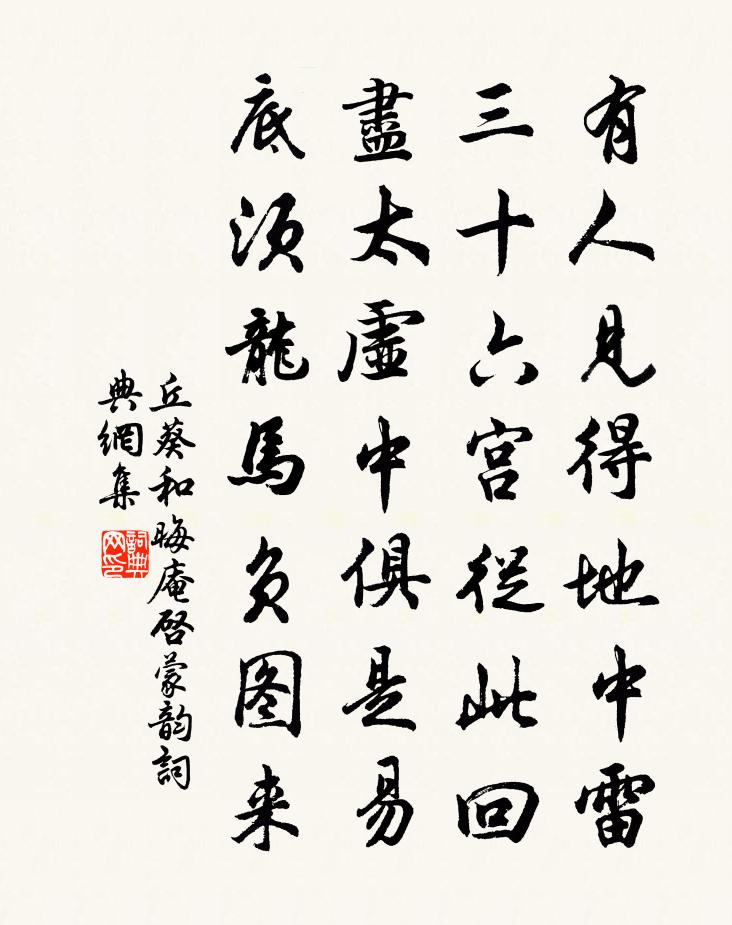 有人見得地中雷
三十六宫從此回
盡太虛中俱是易
底須龍馬负图来
丘葵和晦庵啓蒙韵詞
典網集
詞典
网印